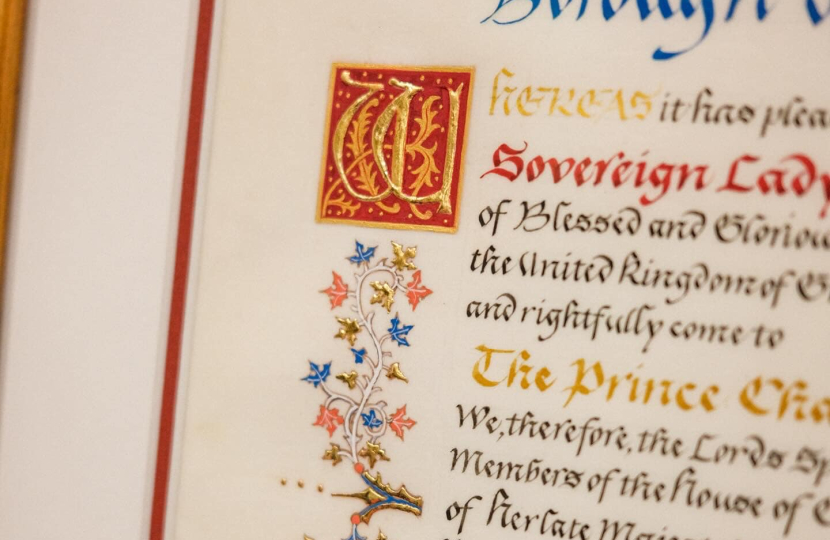 Borough o
WHEREAS it has plea
Sovereign Lady
of Blessed and Gloriou
the United Kingdom of G
and rightfully come to
The Prince Cha
We, therefore, the Lords Sp
Members of the House of C
of Her late Majest